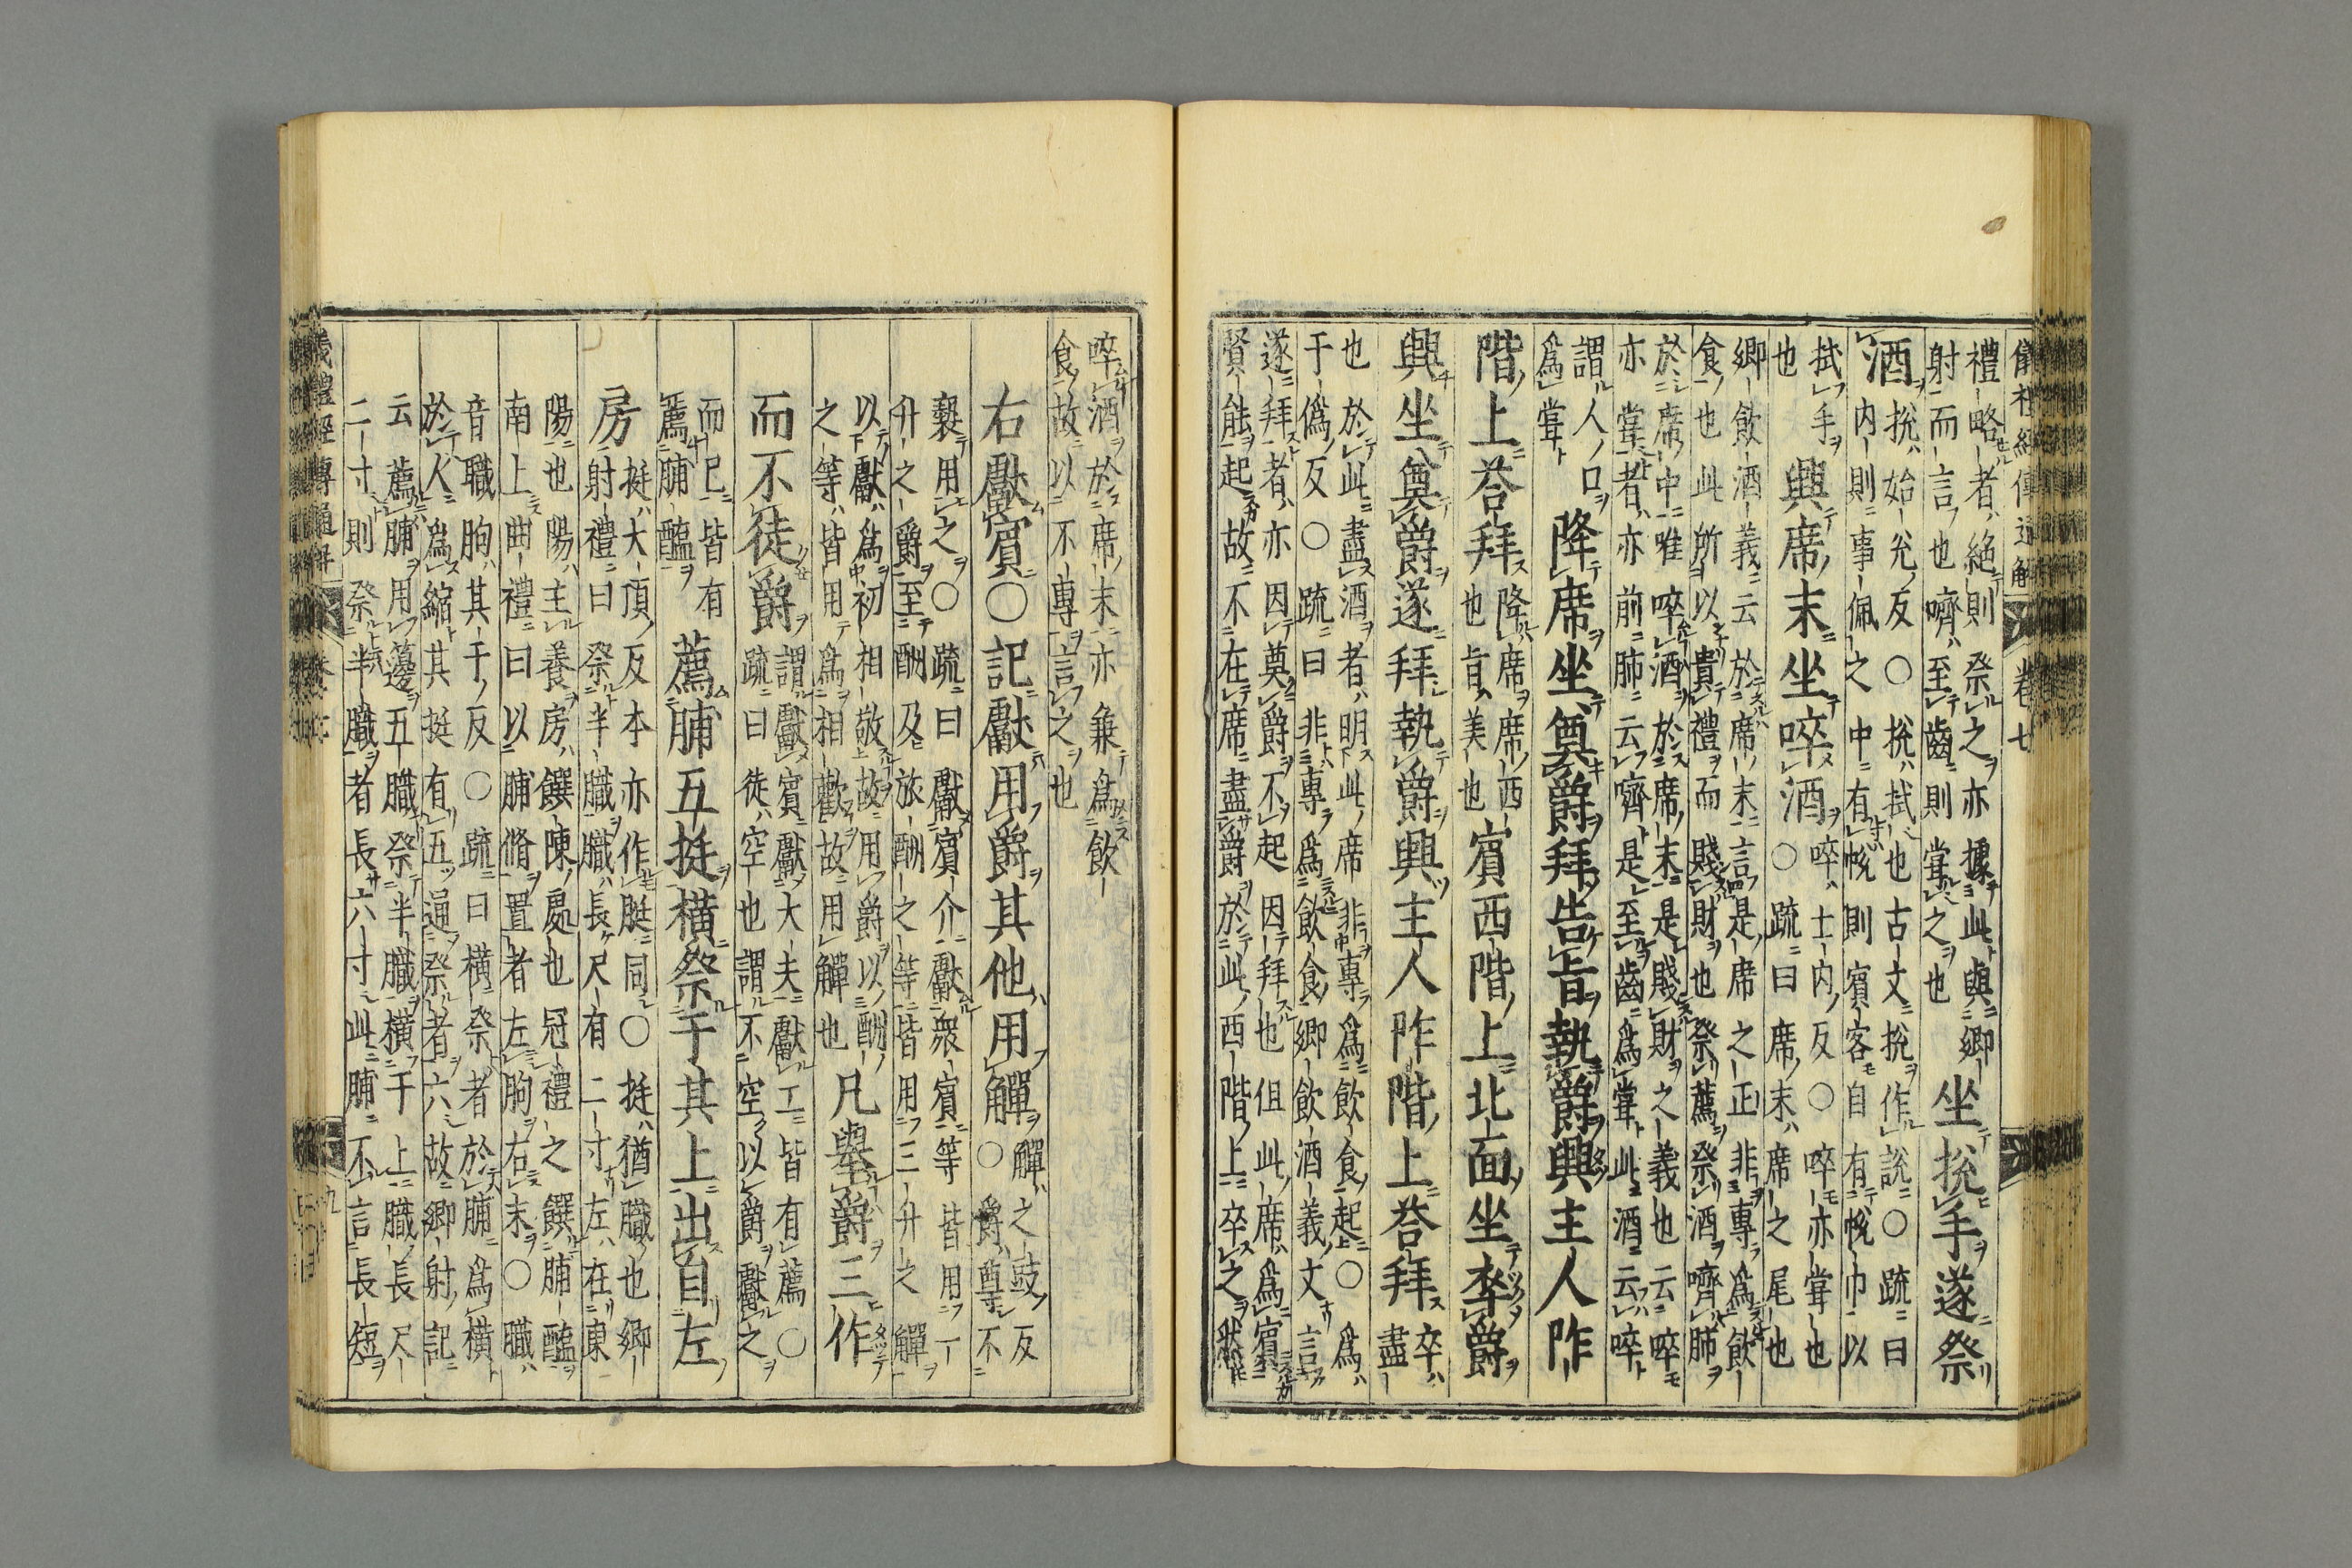 儀禮經傳通解 卷七
禮略者絕則祭之亦據此與鄉
射而言也嚌至齒則嘗之也
坐挩手遂祭
酒
挩始兊反○挩拭也古文挩作說○疏曰
内則事佩之中有帨則賓客自有帨巾以
拭手
也
興席末坐啐酒
啐士内反○啐亦嘗也
○疏曰席末席之尾也
鄉飲酒義云於席末言是席之正非專爲飲
食也此所以貴禮而賤財也祭薦祭酒嚌肺
於席中唯啐酒於席末是賤財之義也云啐
亦嘗者亦前肺云嚌是至齒爲嘗此酒云啐
謂人口
爲嘗
降席坐奠爵拜告旨執爵興主人阼
階上荅拜
降席席西
也旨美也
賓西階上北面坐卒爵
興坐奠爵遂拜執爵興主人阼階上荅拜
卒
盡
也於此盡酒者明此席非專爲飲食起○爲
于僞反○疏曰非專爲飲食鄉飲酒義文言
遂拜者亦因奠爵不起因拜也但此席爲賓
賢能起故不在席盡爵於此西階上卒之然
啐酒於席末亦兼爲飲
食故以不專言之也
右獻賓○記獻用爵其他用觶
觶之豉反
○爵尊不
褻用之○疏曰獻賓介獻衆賓等皆用一
升之爵至酬及旅酬之等皆用三升之觶
以獻爲初相敬故用爵以酬
之等皆用爲相歡故用觶也
凡舉爵三作
而不徒爵
謂獻賓獻大夫獻工皆有薦○
疏曰徒空也謂不空以爵獻之
而已皆有
薦脯醢
薦脯五挺橫祭于其上出自左
房
挺大頂反本亦作脡同○挺猶膱也鄉
射禮曰祭半膱膱長尺有二寸左在東
陽也陽主養房饌陳處也冠禮之饌脯醢
南上曲禮曰以脯脩置者左朐右末○膱
音職朐其于反○疏曰橫祭者於脯爲橫
於人爲縮其挺有五通祭者六故鄉射記
云薦脯用籩五膱祭半膱橫于上膱長尺
二寸則祭半膱者長六寸此脯不言長短
儀禮經傳通解